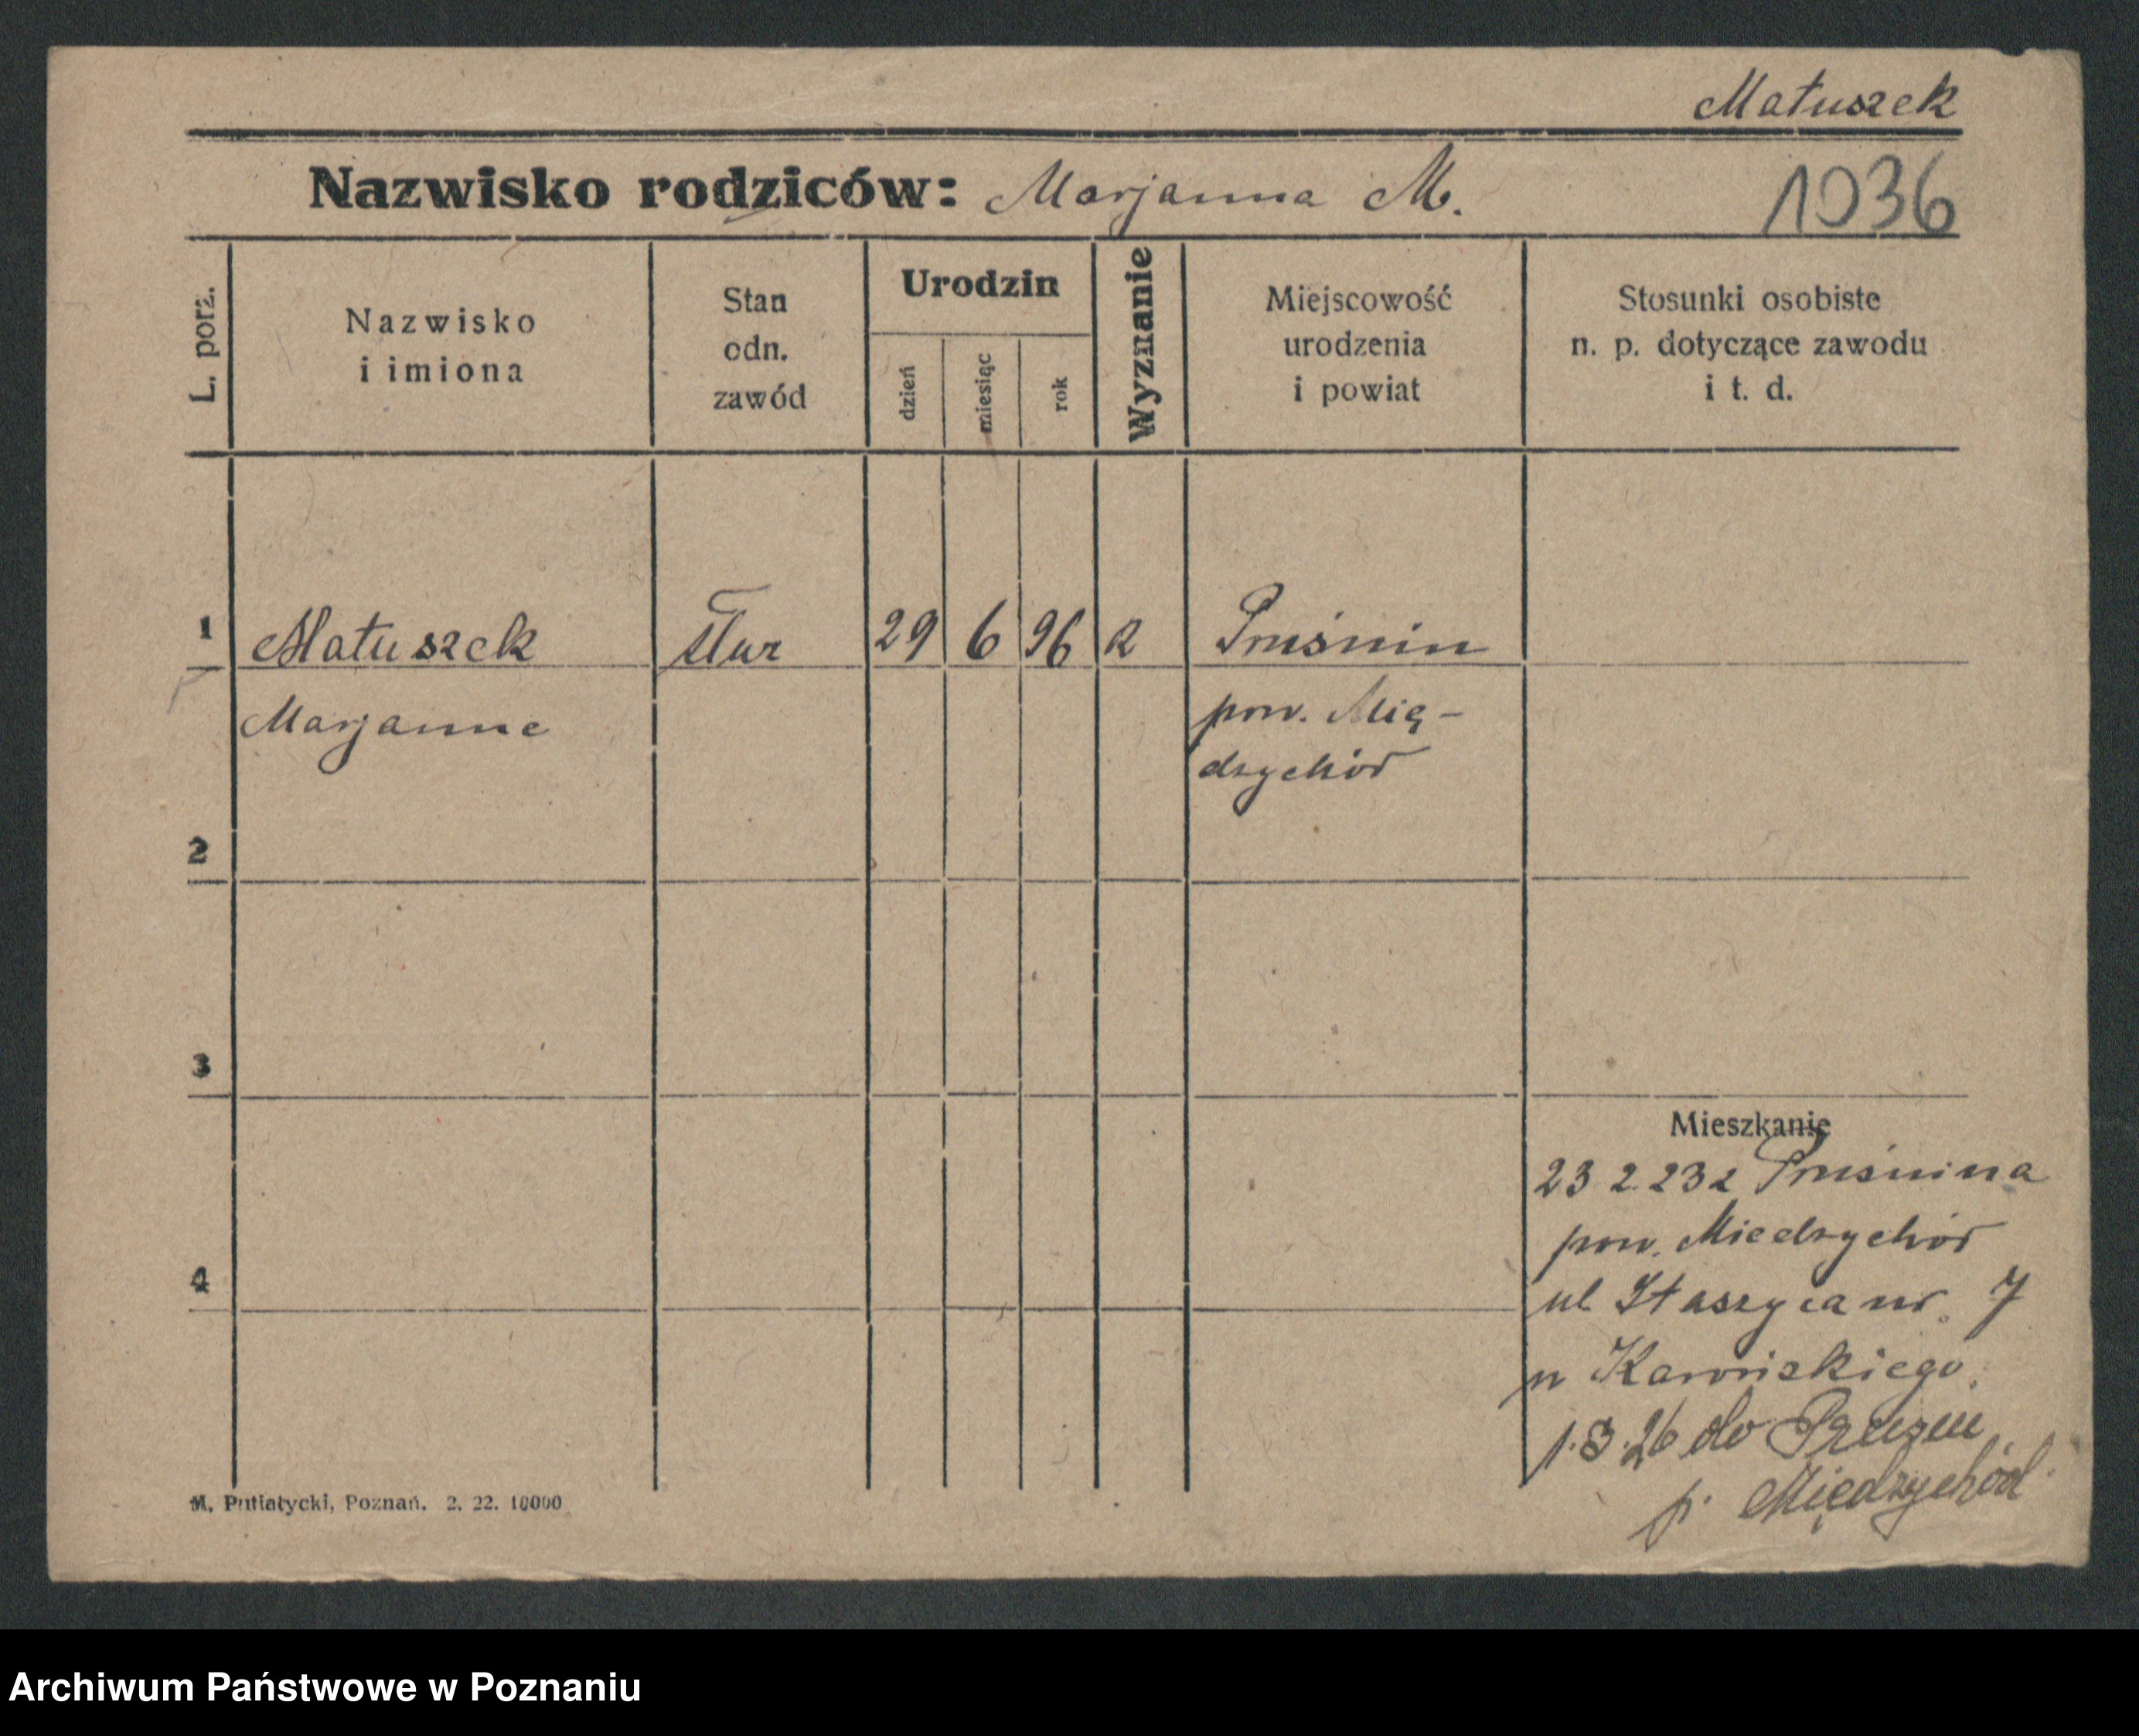 Matuszek
Nazwisko rodziców: Marjanna M.
1036
L. porz.
Nazwisko
i imiona
Stan
odn.
zawód
Urodzin
dzień
miesiąc
rok
Wyznanie
Miejscowość
urodzenia
i powiat
Stosunki osobiste
n. p. dotyczące zawodu
i t. d.
1 Matuszek 29 6 96 Pruśnin
Marjanne pow. Mię-
dzychód
2
3
4
Mieszkanie
23 2 23 z Pruśnina
pow. Miedzychód
ul Staszyca nr. 7
u
1.8.26 do
p. Międzychód
M. Putiatycki, Poznań. 2. 22. 10000
Archiwum Państwowe w Poznaniu